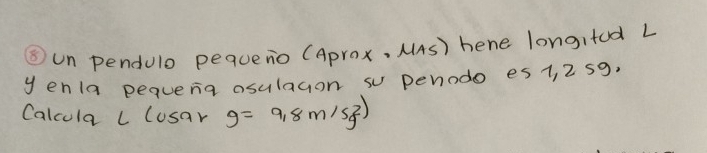 ⑧ Un pendulo pequeño (Aprox. MAS) tiene longitud L
y en la pequeña osulacion su periodo es 1,2 sg.
Calcula L (usar g= 9,8 m/sg²)